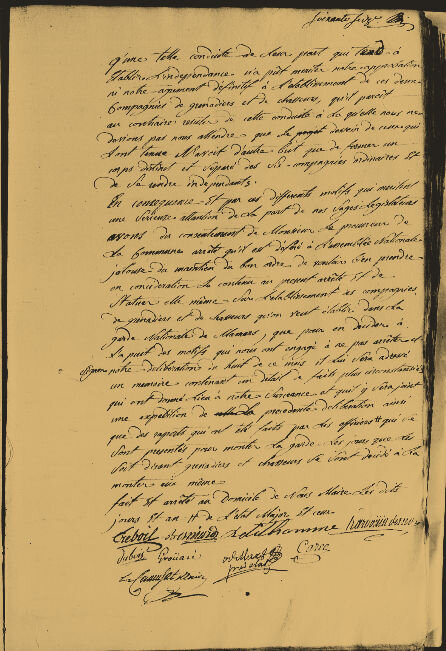 qu'une telle conduite de leur part qui tend à
établir l'independance n'a peut meriter notre approbation
ni notre agrement définitif à l'etablissement de ces deux
Compagnies de grenadiers et de chasseurs, qu'il paroit
au contraire resulter de cette conduite à la quelle nous ne
devions pas nous attendre, que le projet dessein de ceux qui
l'ont tenue n'avoit d'autre but que de former un
corps distinct et séparé des six compagnies ordinaires et
de se rendre independants.
En consequence et par ces differents motifs qui meritent
une serieuse attention de la part de nos sages Legislateurs
avons du consentement de Monsieur le procureur de
la Commune arreté qu'il est déferé à l'assemblée Nationale
jalouse du maintien du bon ordre de vouloir bien prendre
en consideration le contenu au present arreté et de
statuer elle même sur l'etablissement des compagnies
de grenadiers et de chasseurs qu'on veut établir dans la
garde Nationale de Mamers, que pour en decider à
la part des motifs qui nous ont engagé à ne pas arreter
notre deliberation du huit de ce mois il lui sera adressé
un memoire contenant un détail de faits plus circonstanciés
qui ont donné lieu à notre surseance et qu'il y sera joint
une expedition de la precedente deliberation ainsi
que des raports qui ont été faits par les officiers qui se
sont presentés pour monter la garde les jours que les
soit disant grenadiers et chasseurs se sont decidé à la
monter eux même
fait et arreté au domicile de Nous Maire les dits
jours et an
Petithomme
Carre